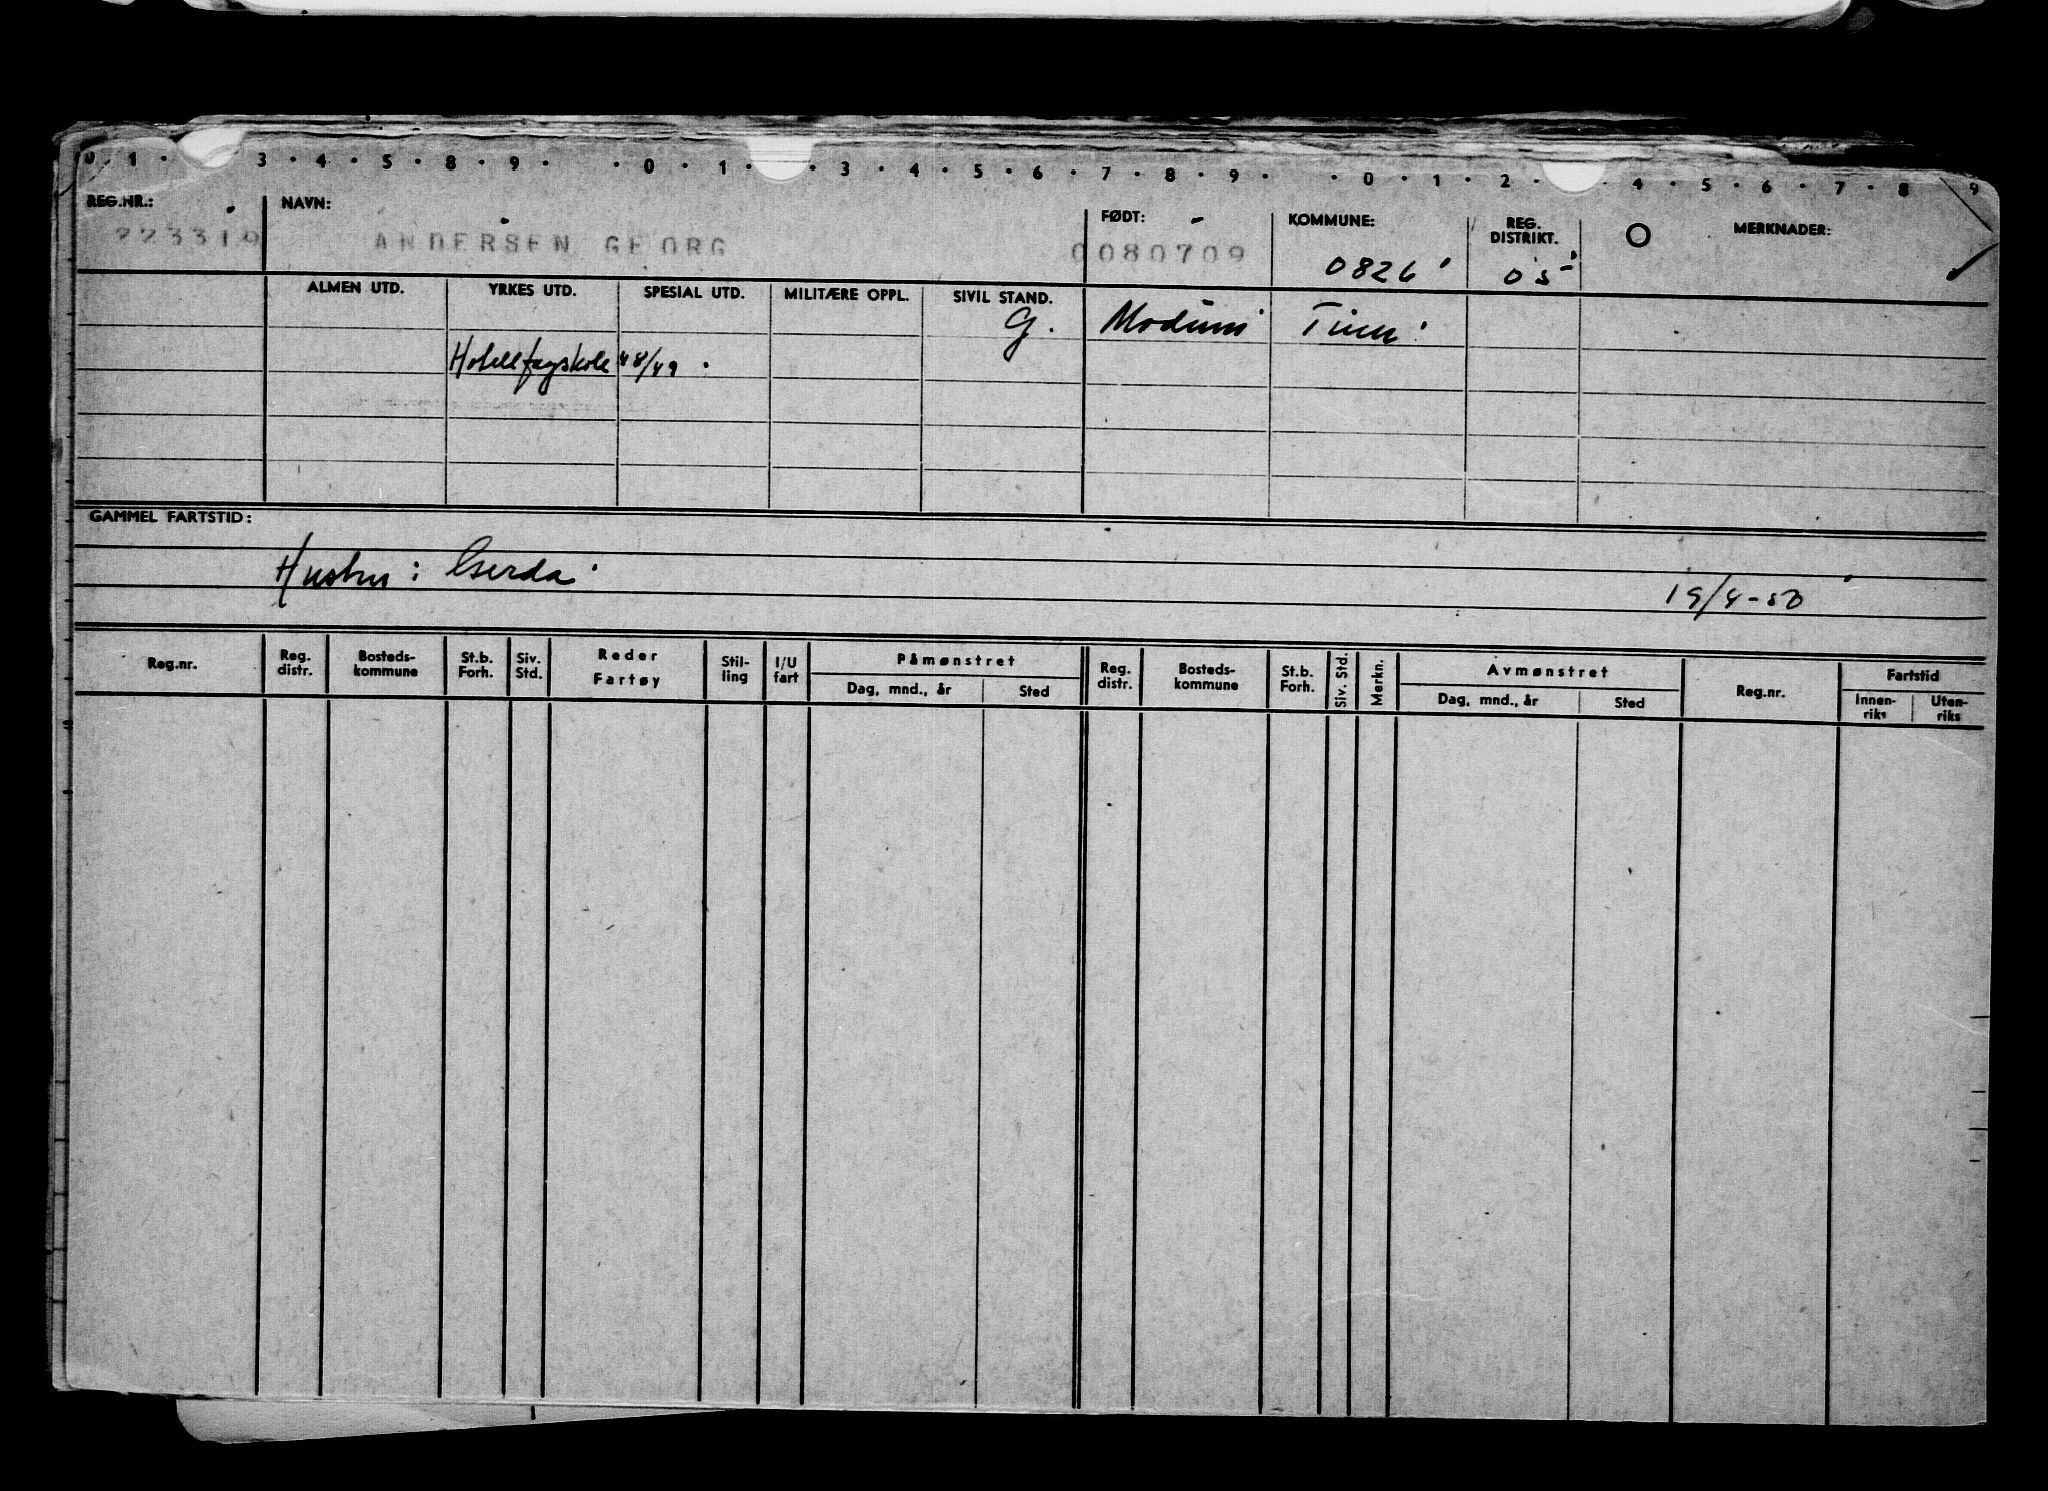 0 1 · 3 · 4 · 5 · 8 · 9 · · 0 · 1 · · 3 · 4 · 5 · 6 · 7 · 8 · 9 · · 0 · 1 · 2 · · 4 · 5 · 6 · 7 · 8 9
REG.NR.: NAVN: FØDT: KOMMUNE: REG. DISTRIKT. O MERKNADER:
223310 ANDERSEN GEORG 0080709 0826 05
ALMEN UTD. YRKES UTD. SPESIAL UTD. MILITÆRE OPPL. SIVIL STAND.
G. Modum Tinn
Hotellfagskole 48/49
GAMMEL FARTSTID:
Hustru: Gerda
19/4-50
Reg.nr. Reg. distr. Bosteds- kommune St.b. Forh. Siv. Std. Reder Fartøy Stil- ling I/U fart Påmønstret Reg. distr. Bosteds- kommune St.b. Forh. Siv. Std. Merkn. Avmønstret Reg.nr. Fartstid
Dag, mnd., år Sted Dag, mnd., år Sted Innen- riks Uten- riks